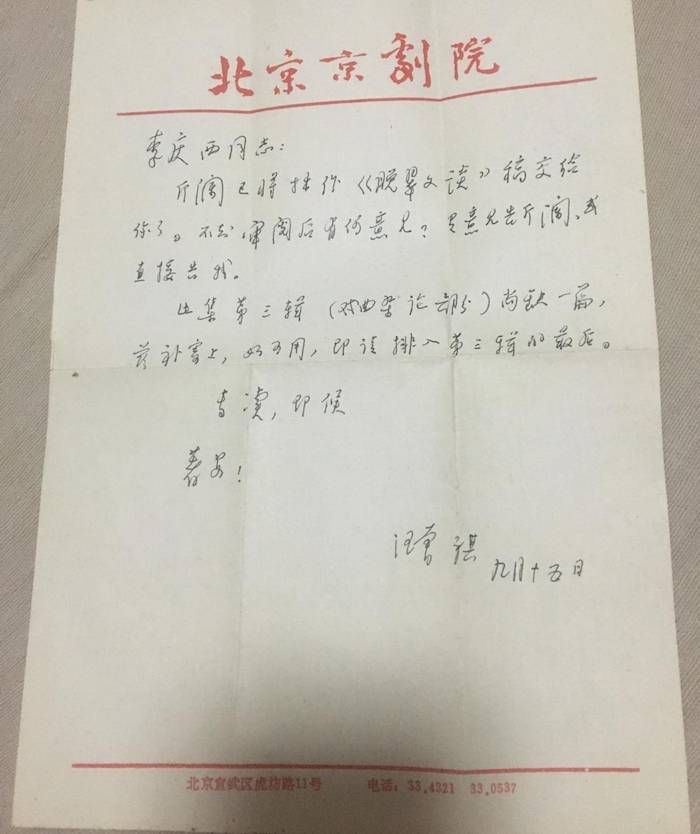 北京京劇院
李庆西同志：
斤澜已将拙作《晚翠文谈》稿交给
你了。不知审阅后有何意见？有意见告斤澜、或
直接告我。
此集第三辑（戏曲杂论部分）尚缺一篇，
兹补寄上，如可用，即请排入第三辑的最后。
专渎，即候
著安！
汪曾祺 九月十五日
北京宣武区虎坊路11号 电话：33.4321 33.0537